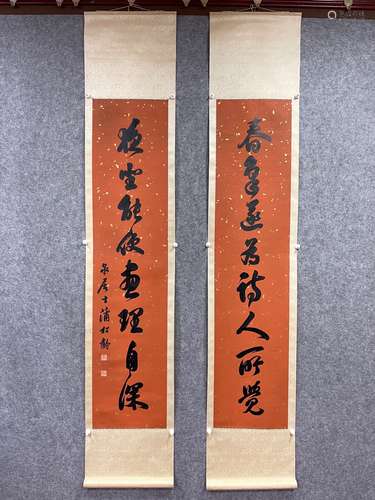 春氣遂為詩人所覺
夜坐能使畫理自深
泉居士蒲松齡